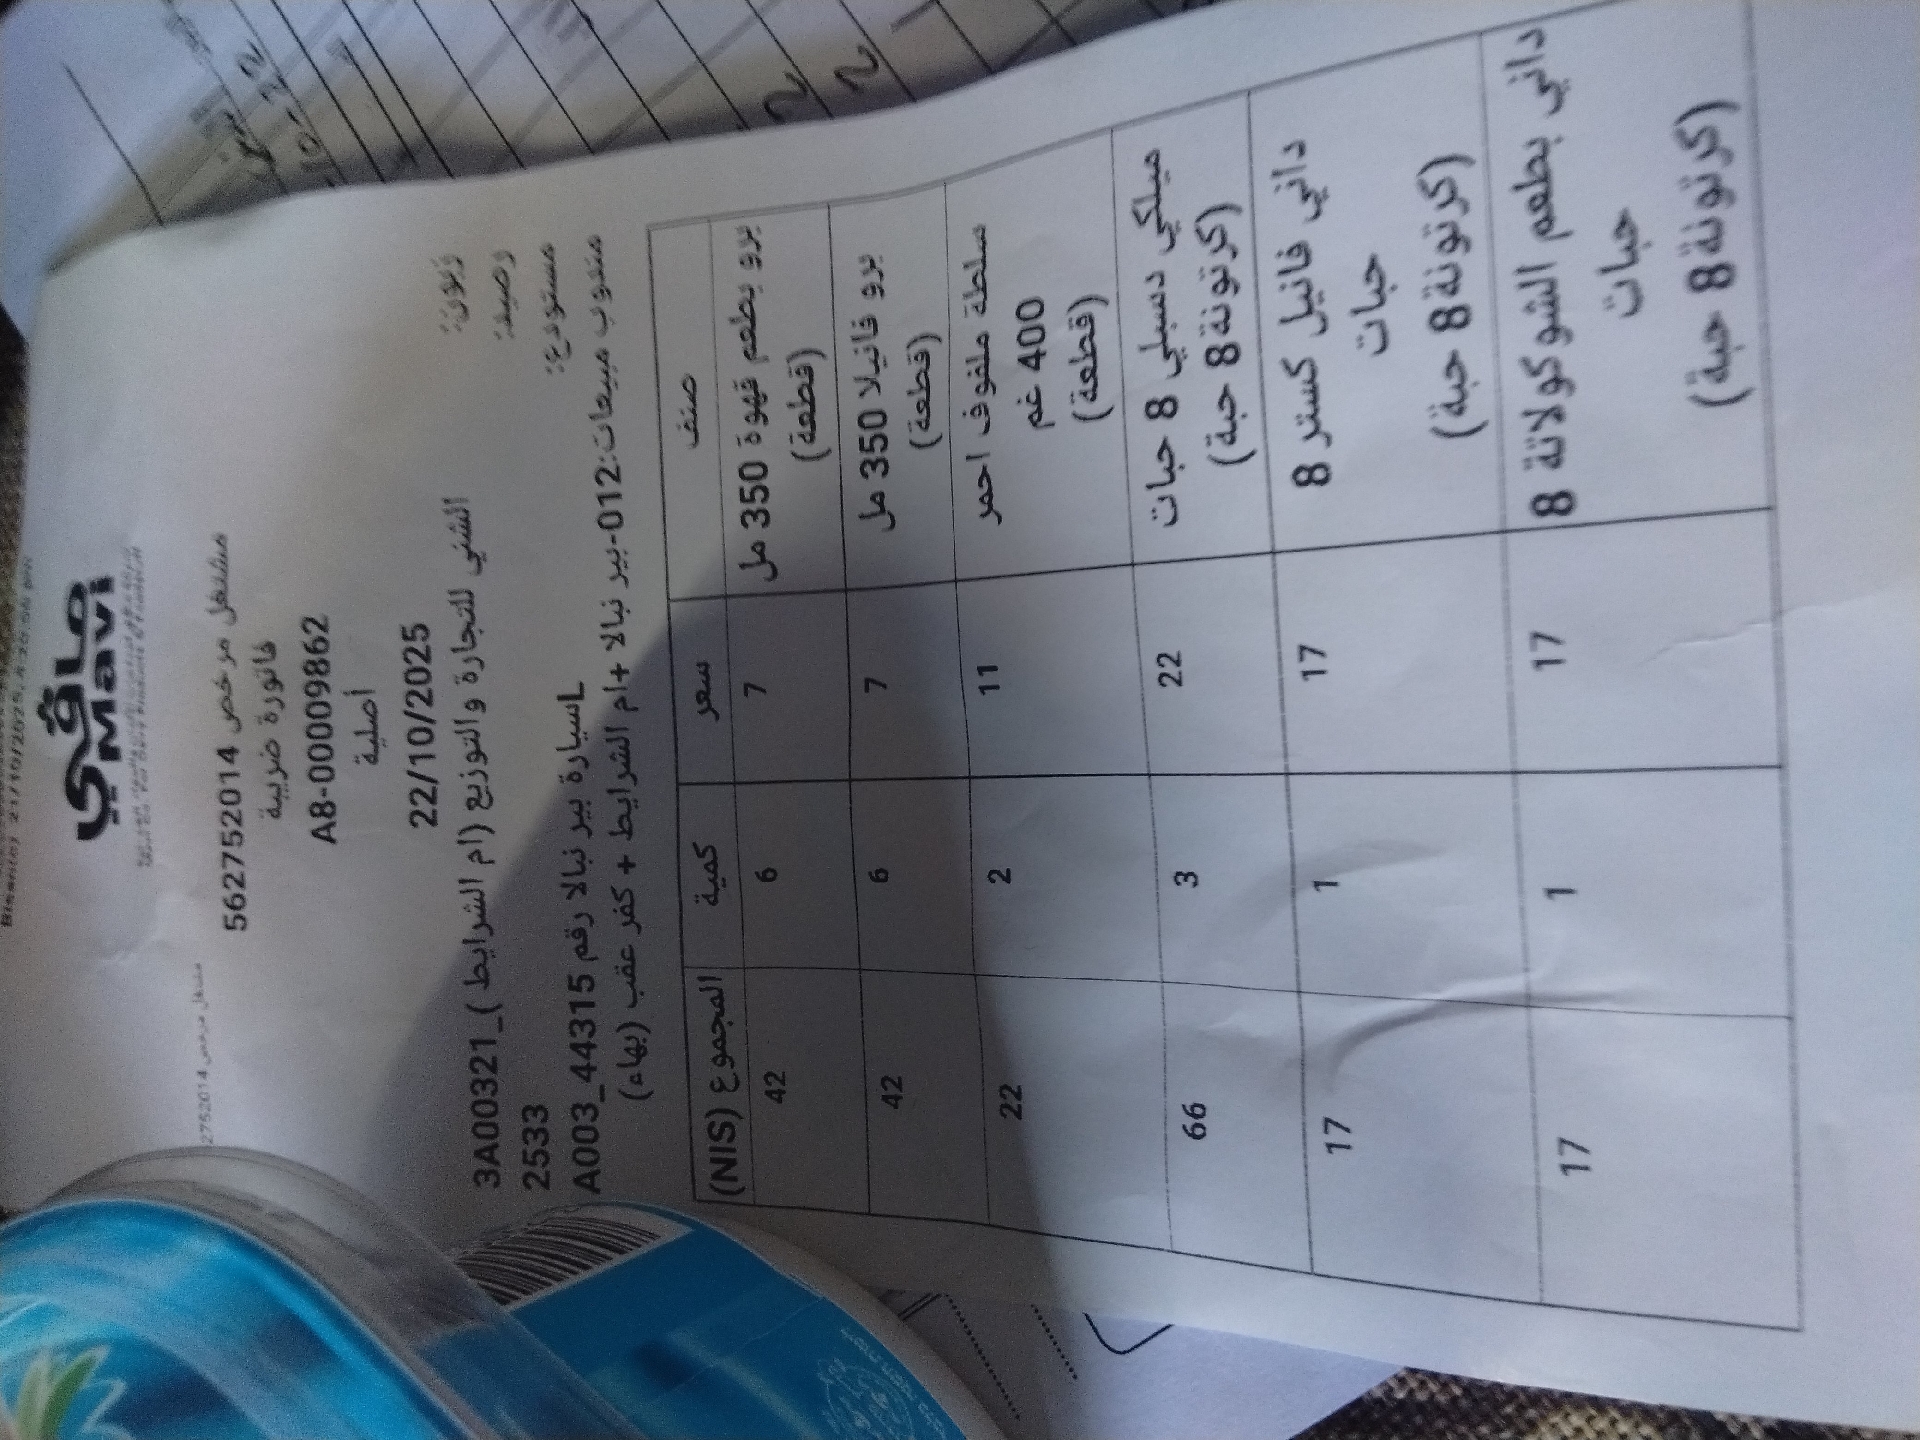 مافي
Mavi
مشتغل مرخص 562752014
فاتورة ضريبية
A8-00009862
أصلية
22/10/2025
زبون: 3A00321_( الشني للتجارة والتوزيع (ام الشرايط
وصية: 2533
مستودع: A003_44315 سيارة بير نبالا رقم
مندوب مبيعات: 012-بير نبالا +ام الشرايط + كفر عقب (بهاء)
صنف سعر كمية المجموع (NIS)
برو بطعم قهوة 350 مل 7 6 42
(قطعة)
برو فانيلا 350 مل 7 6 42
(قطعة)
سلطة ملفوف احمر 11 2 22
400 غم
(قطعة)
ميلكي دسبلي 8 حبات 22 3 66
(كرتونة 8 حبة)
داني فانيل كستر 8 17 1 17
حبات
(كرتونة 8 حبة)
داني بطعم الشوكولاتة 8 17 1 17
حبات
(كرتونة 8 حبة)